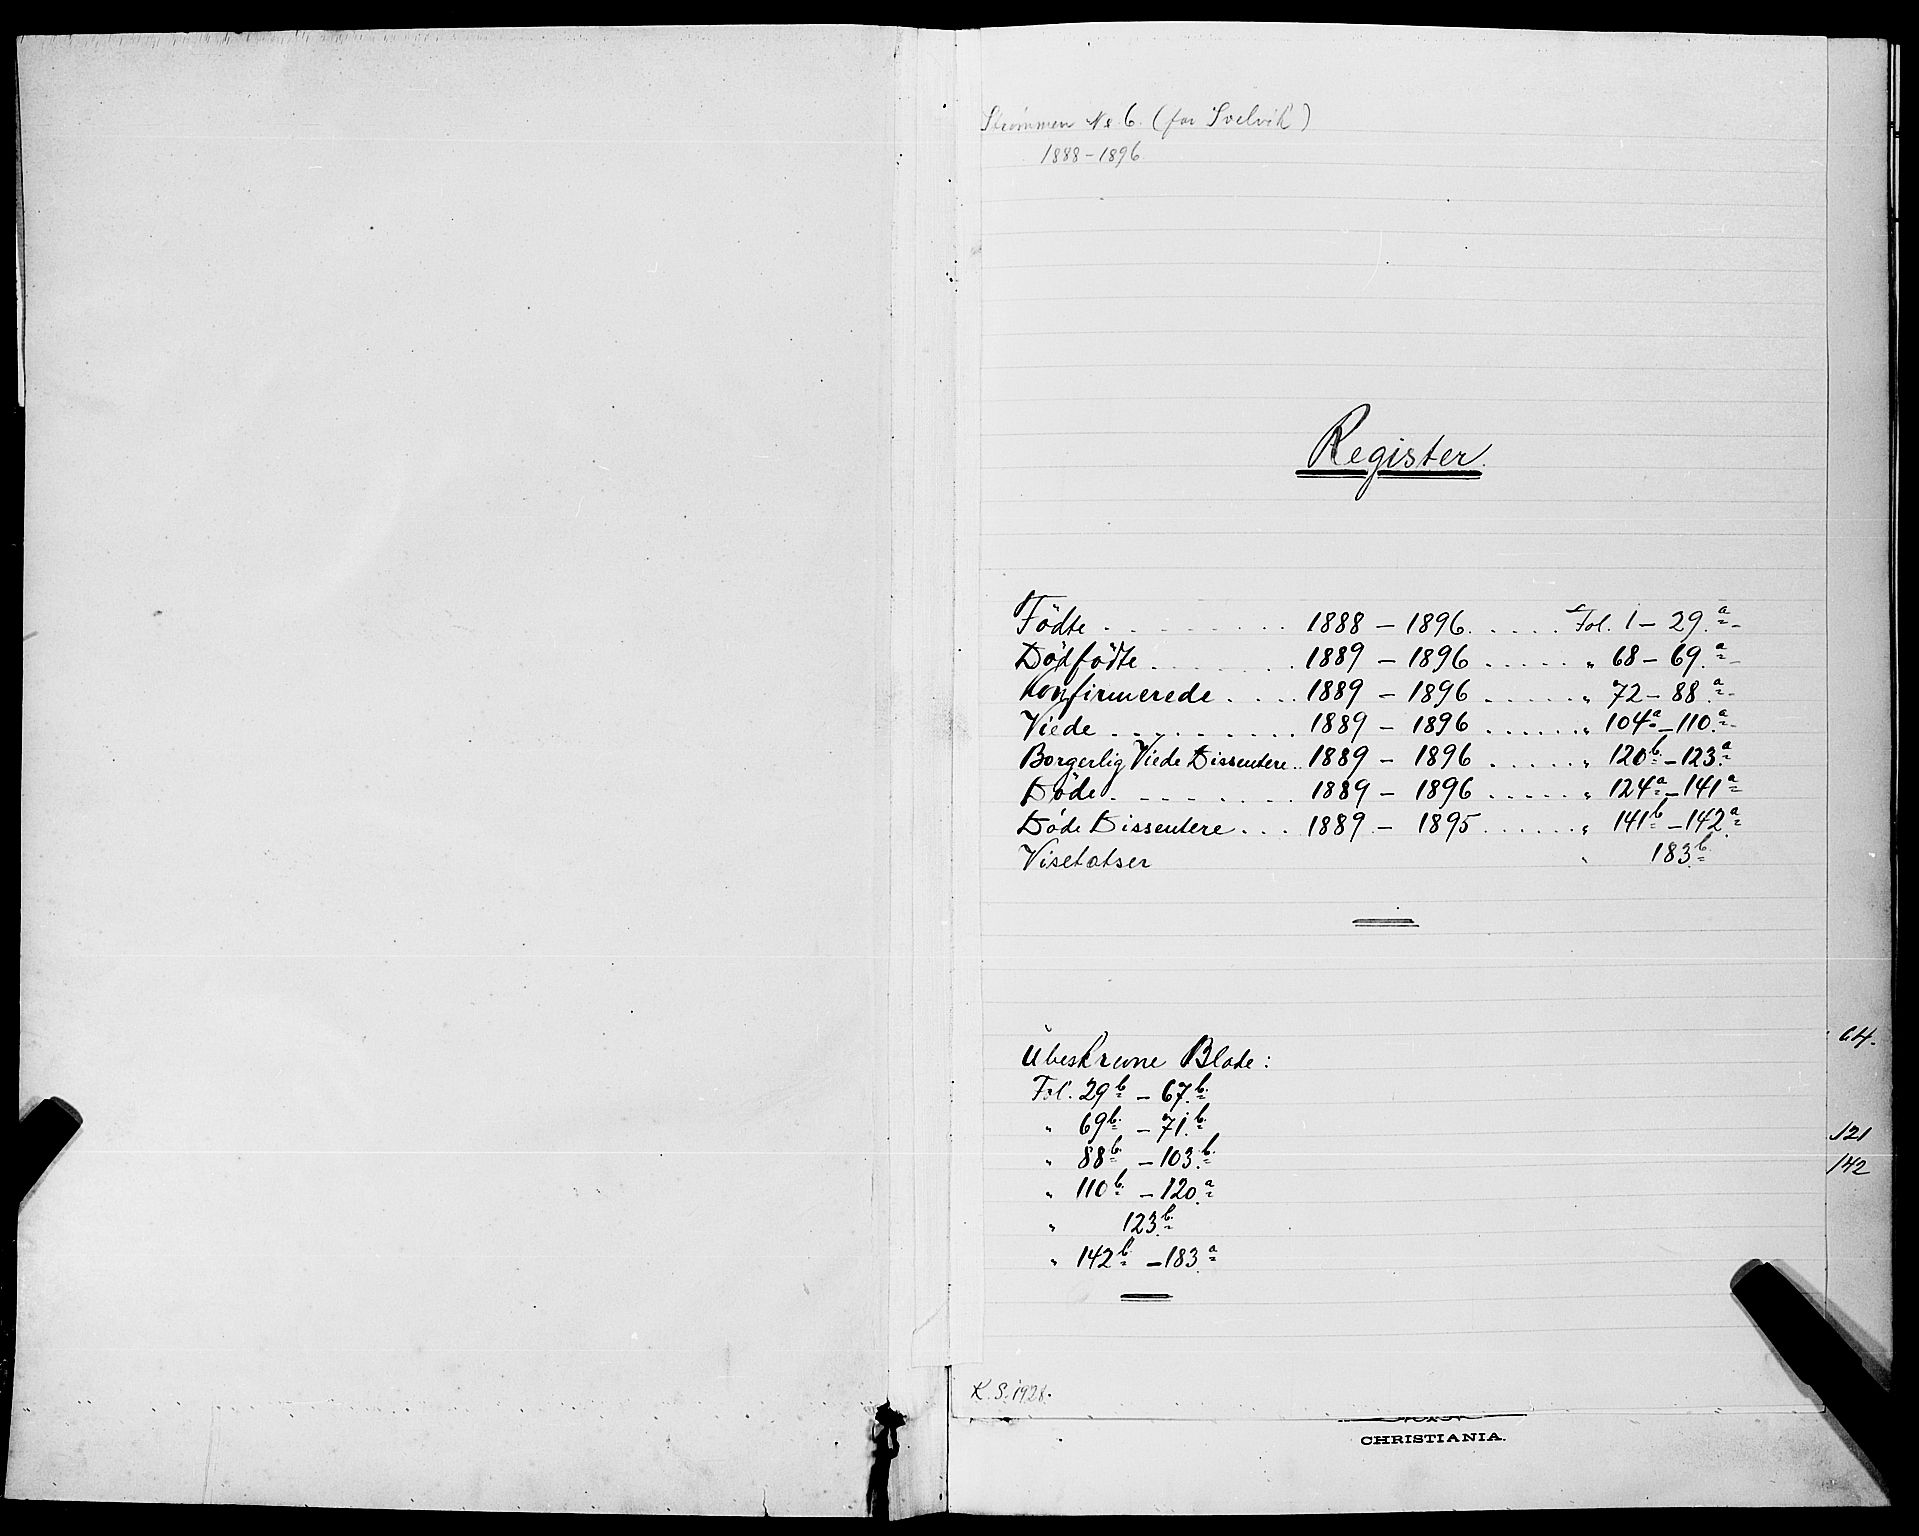 Strømmen No 6. (for Svelvik)
1888-1896
Register.
Födte . . . . . . . . . 1888 - 1896. . . . . . Fol. 1 - 29.a
Dödfödte . . . . . . . 1889 - 1896 . . . . . . " 68 - 69.a
Konfirmerede . . . . 1889 - 1896 . . . . . . " 72 - 88.a
Viede . . . . . . . . . 1889 - 1896 . . . . . . " 104a - 110.a
Borgerlig Viede Dissentere . . 1889 - 1896 . . . . . " 120b - 123.a
Döde . . . . . . . . . 1889 - 1896 . . . . . . " 124a - 141a
Döde Dissentere . . . 1889 - 1895 . . . . . . " 141b - 142.a
Visetatser " 183.b
Ubeskrevne Blade:
Fol. 29b - 67.b
" 69b - 71.b
" 88b - 103.b
" 110b - 120.a
" 123.b
" 142b - 183.a
64.
121
142
K. S. 1928.
CHRISTIANIA.